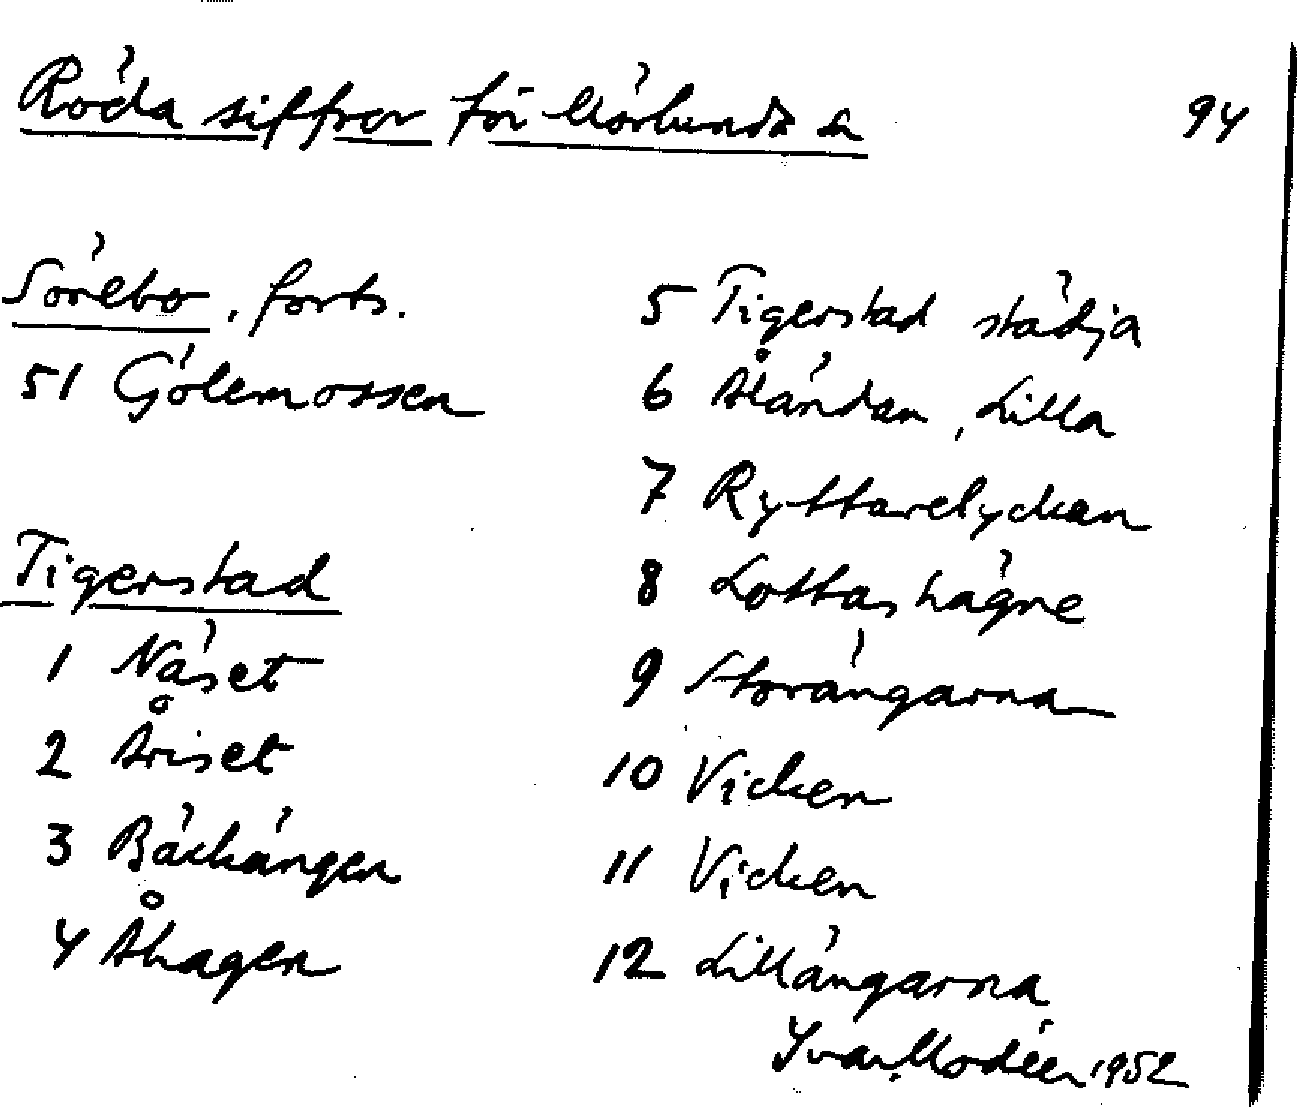 Röda siffror för Mörlunda sn
94
Sörebo, forts.
51 Gölemossen
Tigerstad
1 Näset
2 Åriset
3 Bäckängen
4 Åhagen
5 Tigerstad städja
6 Åländan, Lilla
7 Ryttarelyckan
8 Lottas hägne
9 Storängarna
10 Vicken
11 Vicken
12 Lillängarna
Ivar Modéer 1952